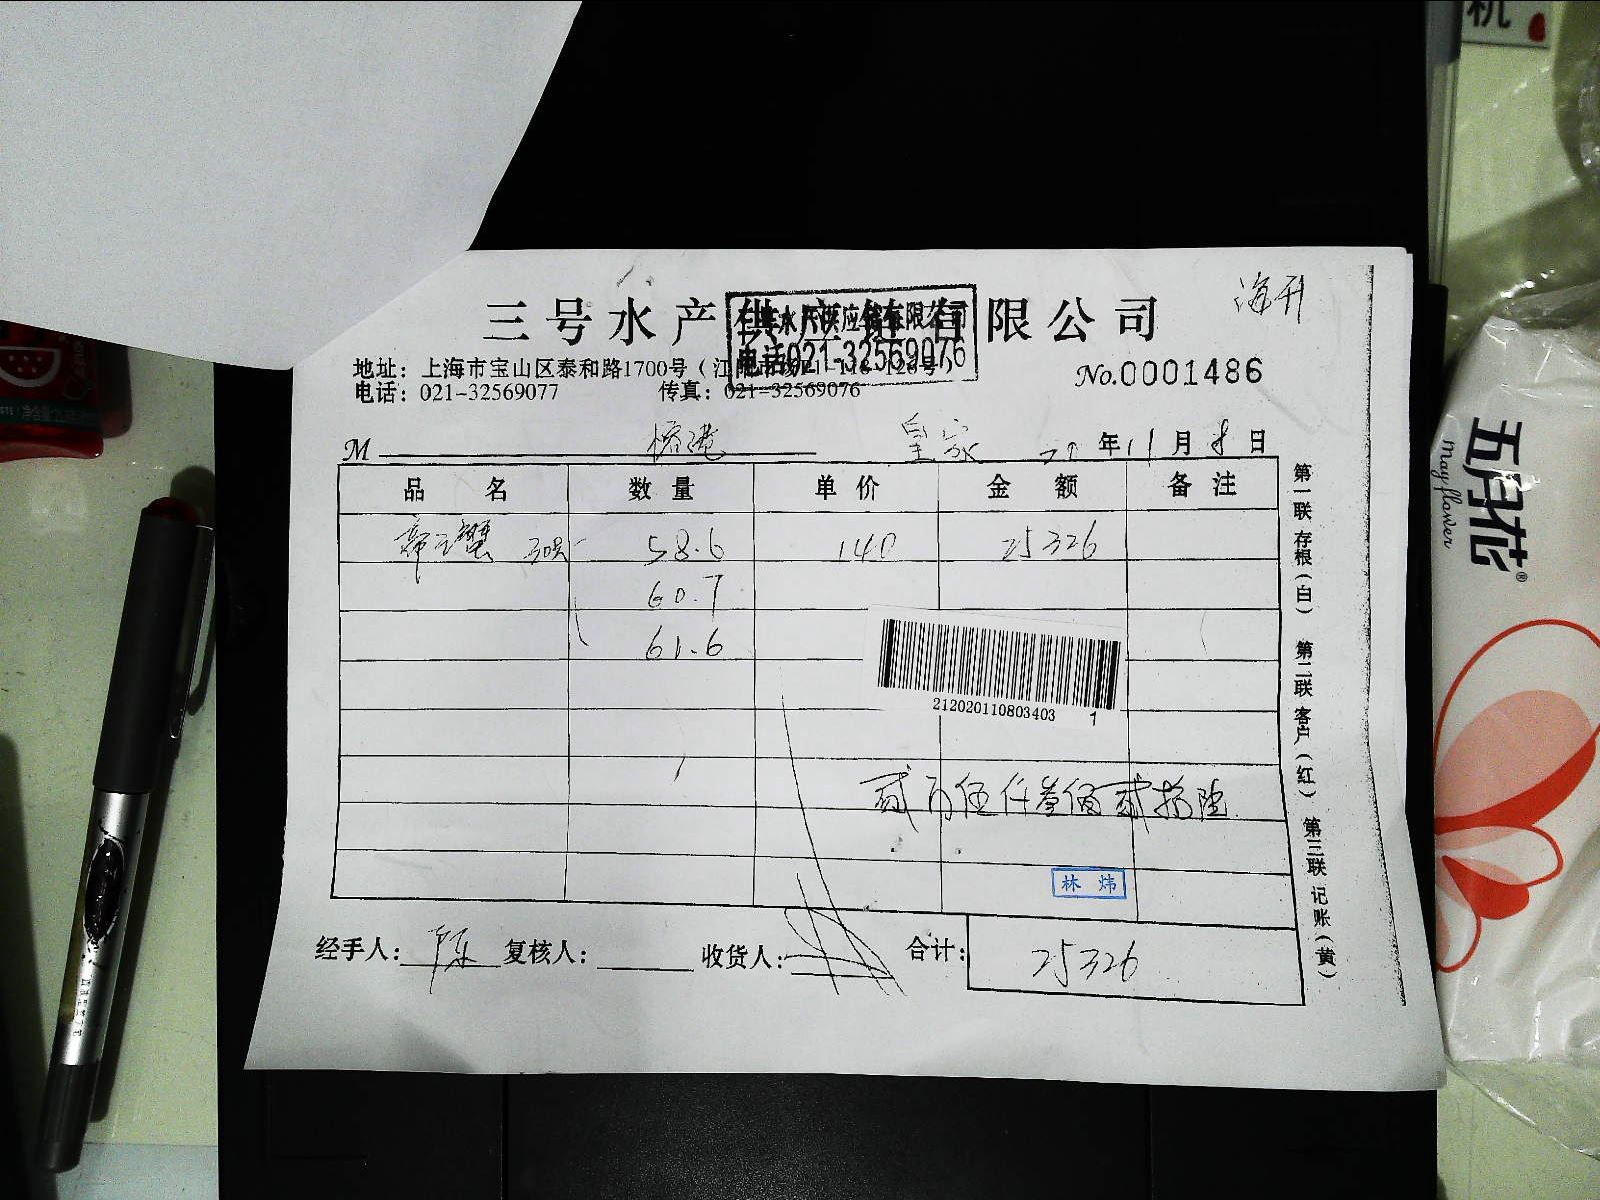 机
海升
三号水产供应链有限公司
仁年水产供应销有限公司
电话021-32569076
地址：上海市宝山区泰和路1700号（江阳市场F1-118-128号）
电话：021-32569077 传真：021-32569076
No.0001486
M 榕港 皇家 20年11月8日
品名 数量 单价 金额 备注
帝王蟹 30只 58.6 140 25326
60.7
61.6
212020110803403 1
贰万伍仟叁佰贰拾陆
林炜
经手人： 复核人： 收货人： 合计：25326
第一联 存根（白） 第二联 客户（红） 第三联 记账（黄）
五月花®
Mayflower